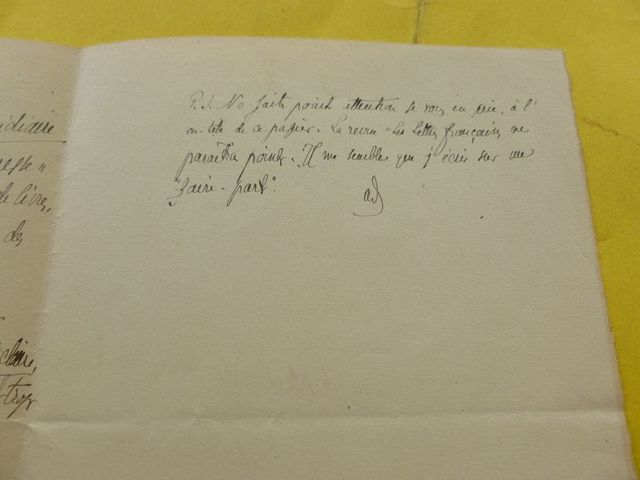 P.S. Ne faites point attention je vous en prie, à l'
en-tête de ce papier. La revue "Les Lettres françaises" ne
paraîtra point. Il me semble que j'écris sur un
"faire-part".
ad
idiaire
de livres,
de
claire,
trop